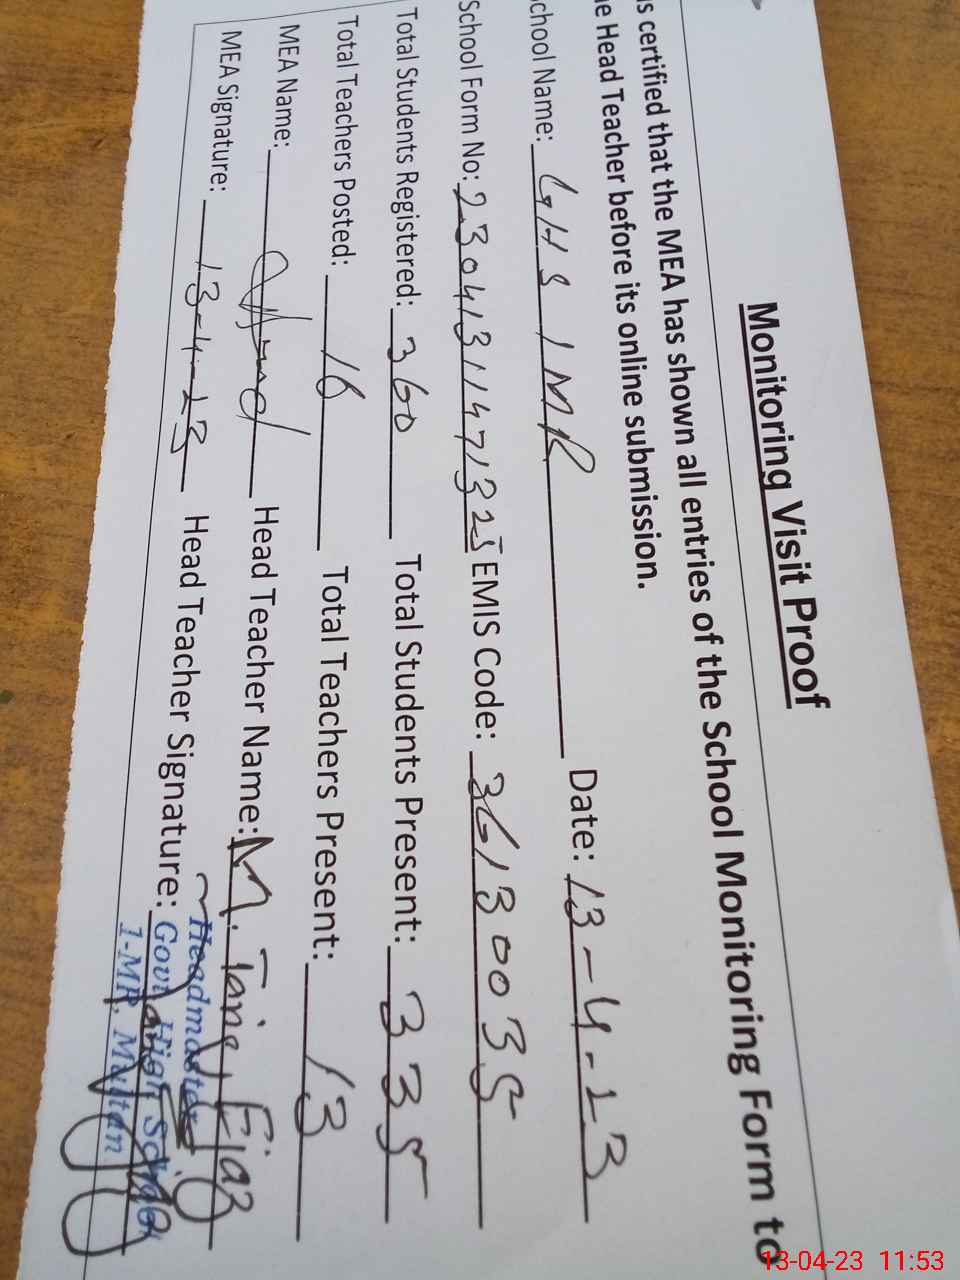 Monitoring Visit Proof
is certified that the MEA has shown all entries of the School Monitoring Form to
e Head Teacher before its online submission.
chool Name: GHS 1 MR Date: 13-4-23
School Form No: 23041311471325 EMIS Code: 36130035
Total Students Registered: 360 Total Students Present: 335
Total Teachers Posted: 16 Total Teachers Present: 13
MEA Name: Head Teacher Name: M. Tariq Ejaz
MEA Signature: 13-4-23 Head Teacher Signature:
Headmaster
Govt High School
1-MR, Multan
13-04-23 11:53